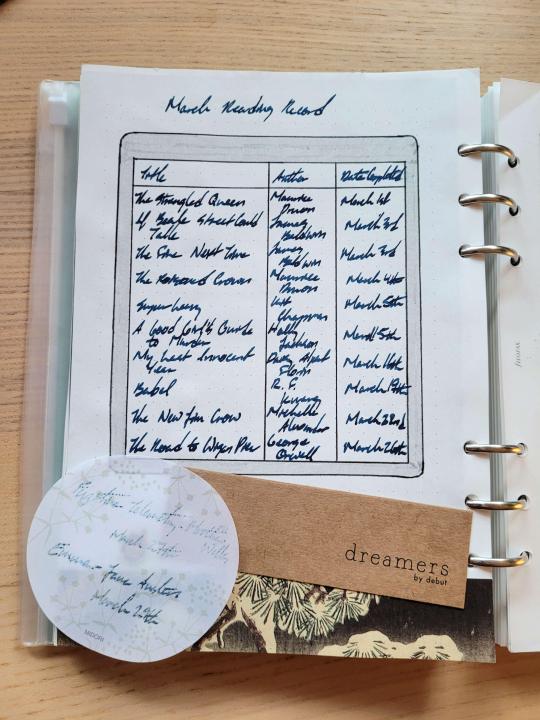 March Reading Record
Title Author Date Completed
The Strangled Queen Maurice Druon March 1st
If Beale Street Could Talk James Baldwin March 3rd
The Fire Next Time James Baldwin March 3rd
The Poisoned Crown Maurice Druon March 4th
Superheavy Kit Chapman March 5th
A Good Girl's Guide to Murder Holly Jackson March 5th
My Last Innocent Year Daisy Alpert Florin March
Babel R. F. Kuang March
The New Jim Crow Michelle Alexander March 22nd
The Road to Wigan Pier George Orwell March 26th
Fugitive Telemetry - Martha Wells
March 27th
Emma - Jane Austen
March 29th
MIDORI
dreamers
by debut